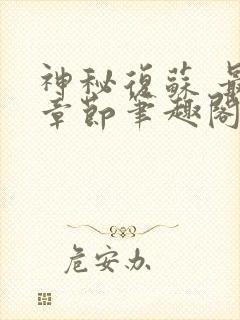 神秘復蘇 最
章節筆趣閣
危安办